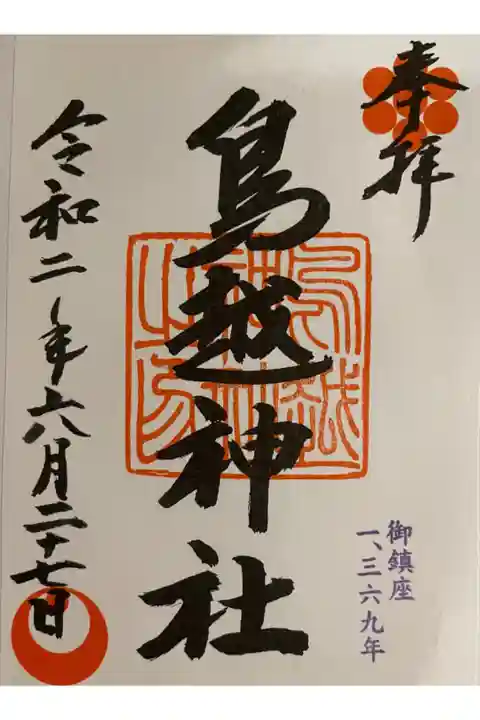 奉拝
鳥越神社
令和二年六月二十七日
御鎮座
一、三六九年